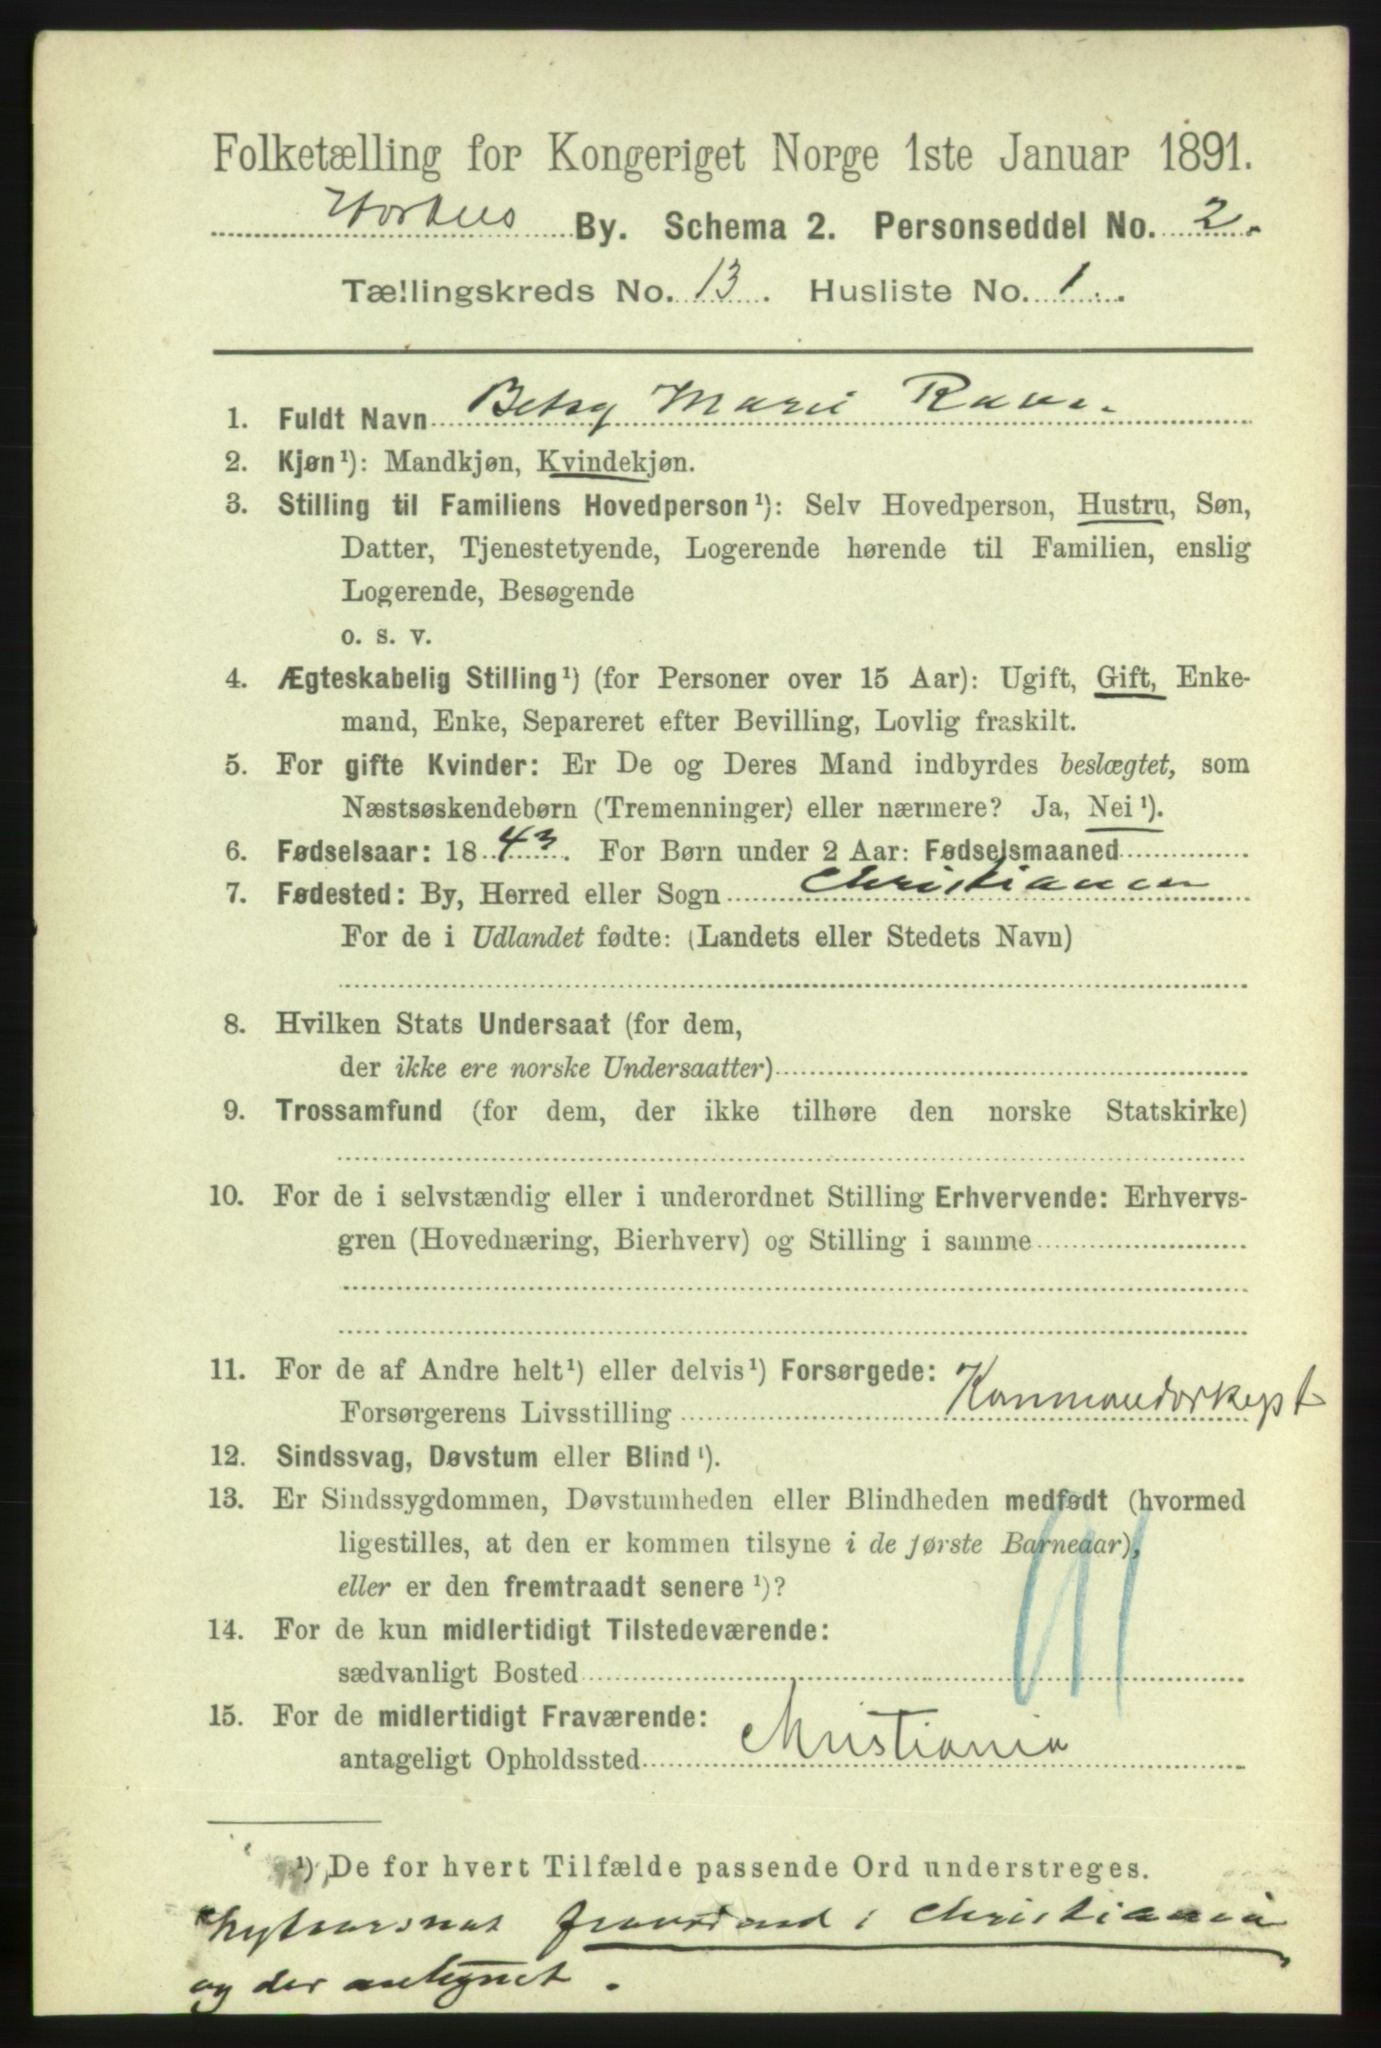 Folketælling for Kongeriget Norge 1ste Januar 1891.
Horten By. Schema 2. Personseddel No. 2.
Tællingskreds No. 13. Husliste No. 1.
1. Fuldt Navn Betsy Marie Rave.
2. Kjøn¹): Mandkjøn, Kvindekjøn.
3. Stilling til Familiens Hovedperson¹): Selv Hovedperson, Hustru, Søn,
Datter, Tjenestetyende, Logerende hørende til Familien, enslig
Logerende, Besøgende
o. s. v.
4. Ægteskabelig Stilling¹) (for Personer over 15 Aar): Ugift, Gift, Enke-
mand, Enke, Separeret efter Bevilling, Lovlig fraskilt.
5. For gifte Kvinder: Er De og Deres Mand indbyrdes beslægtet, som
Næstsøskendebørn (Tremenninger) eller nærmere? Ja, Nei¹).
6. Fødselsaar: 1843. For Børn under 2 Aar: Fødselsmaaned
7. Fødested: By, Herred eller Sogn Christiania
For de i Udlandet fødte: (Landets eller Stedets Navn)
8. Hvilken Stats Undersaat (for dem,
der ikke ere norske Undersaatter)
9. Trossamfund (for dem, der ikke tilhøre den norske Statskirke)
10. For de i selvstændig eller i underordnet Stilling Erhvervende: Erhvervs-
gren (Hovednæring, Bierhverv) og Stilling i samme
11. For de af Andre helt¹) eller delvis¹) Forsørgede:
Forsørgerens Livsstilling Kommandørkapt
12. Sindssvag, Døvstum eller Blind¹).
13. Er Sindssygdommen, Døvstumheden eller Blindheden medfødt (hvormed
ligestilles, at den er kommen tilsyne i de første Barneaar),
eller er den fremtraadt senere¹)?
14. For de kun midlertidigt Tilstedeværende:
sædvanligt Bosted
15. For de midlertidigt Fraværende:
antageligt Opholdssted Christiania
¹) De for hvert Tilfælde passende Ord understreges.
Nytaarsnat fraværend i Christiania
og der antegnet.